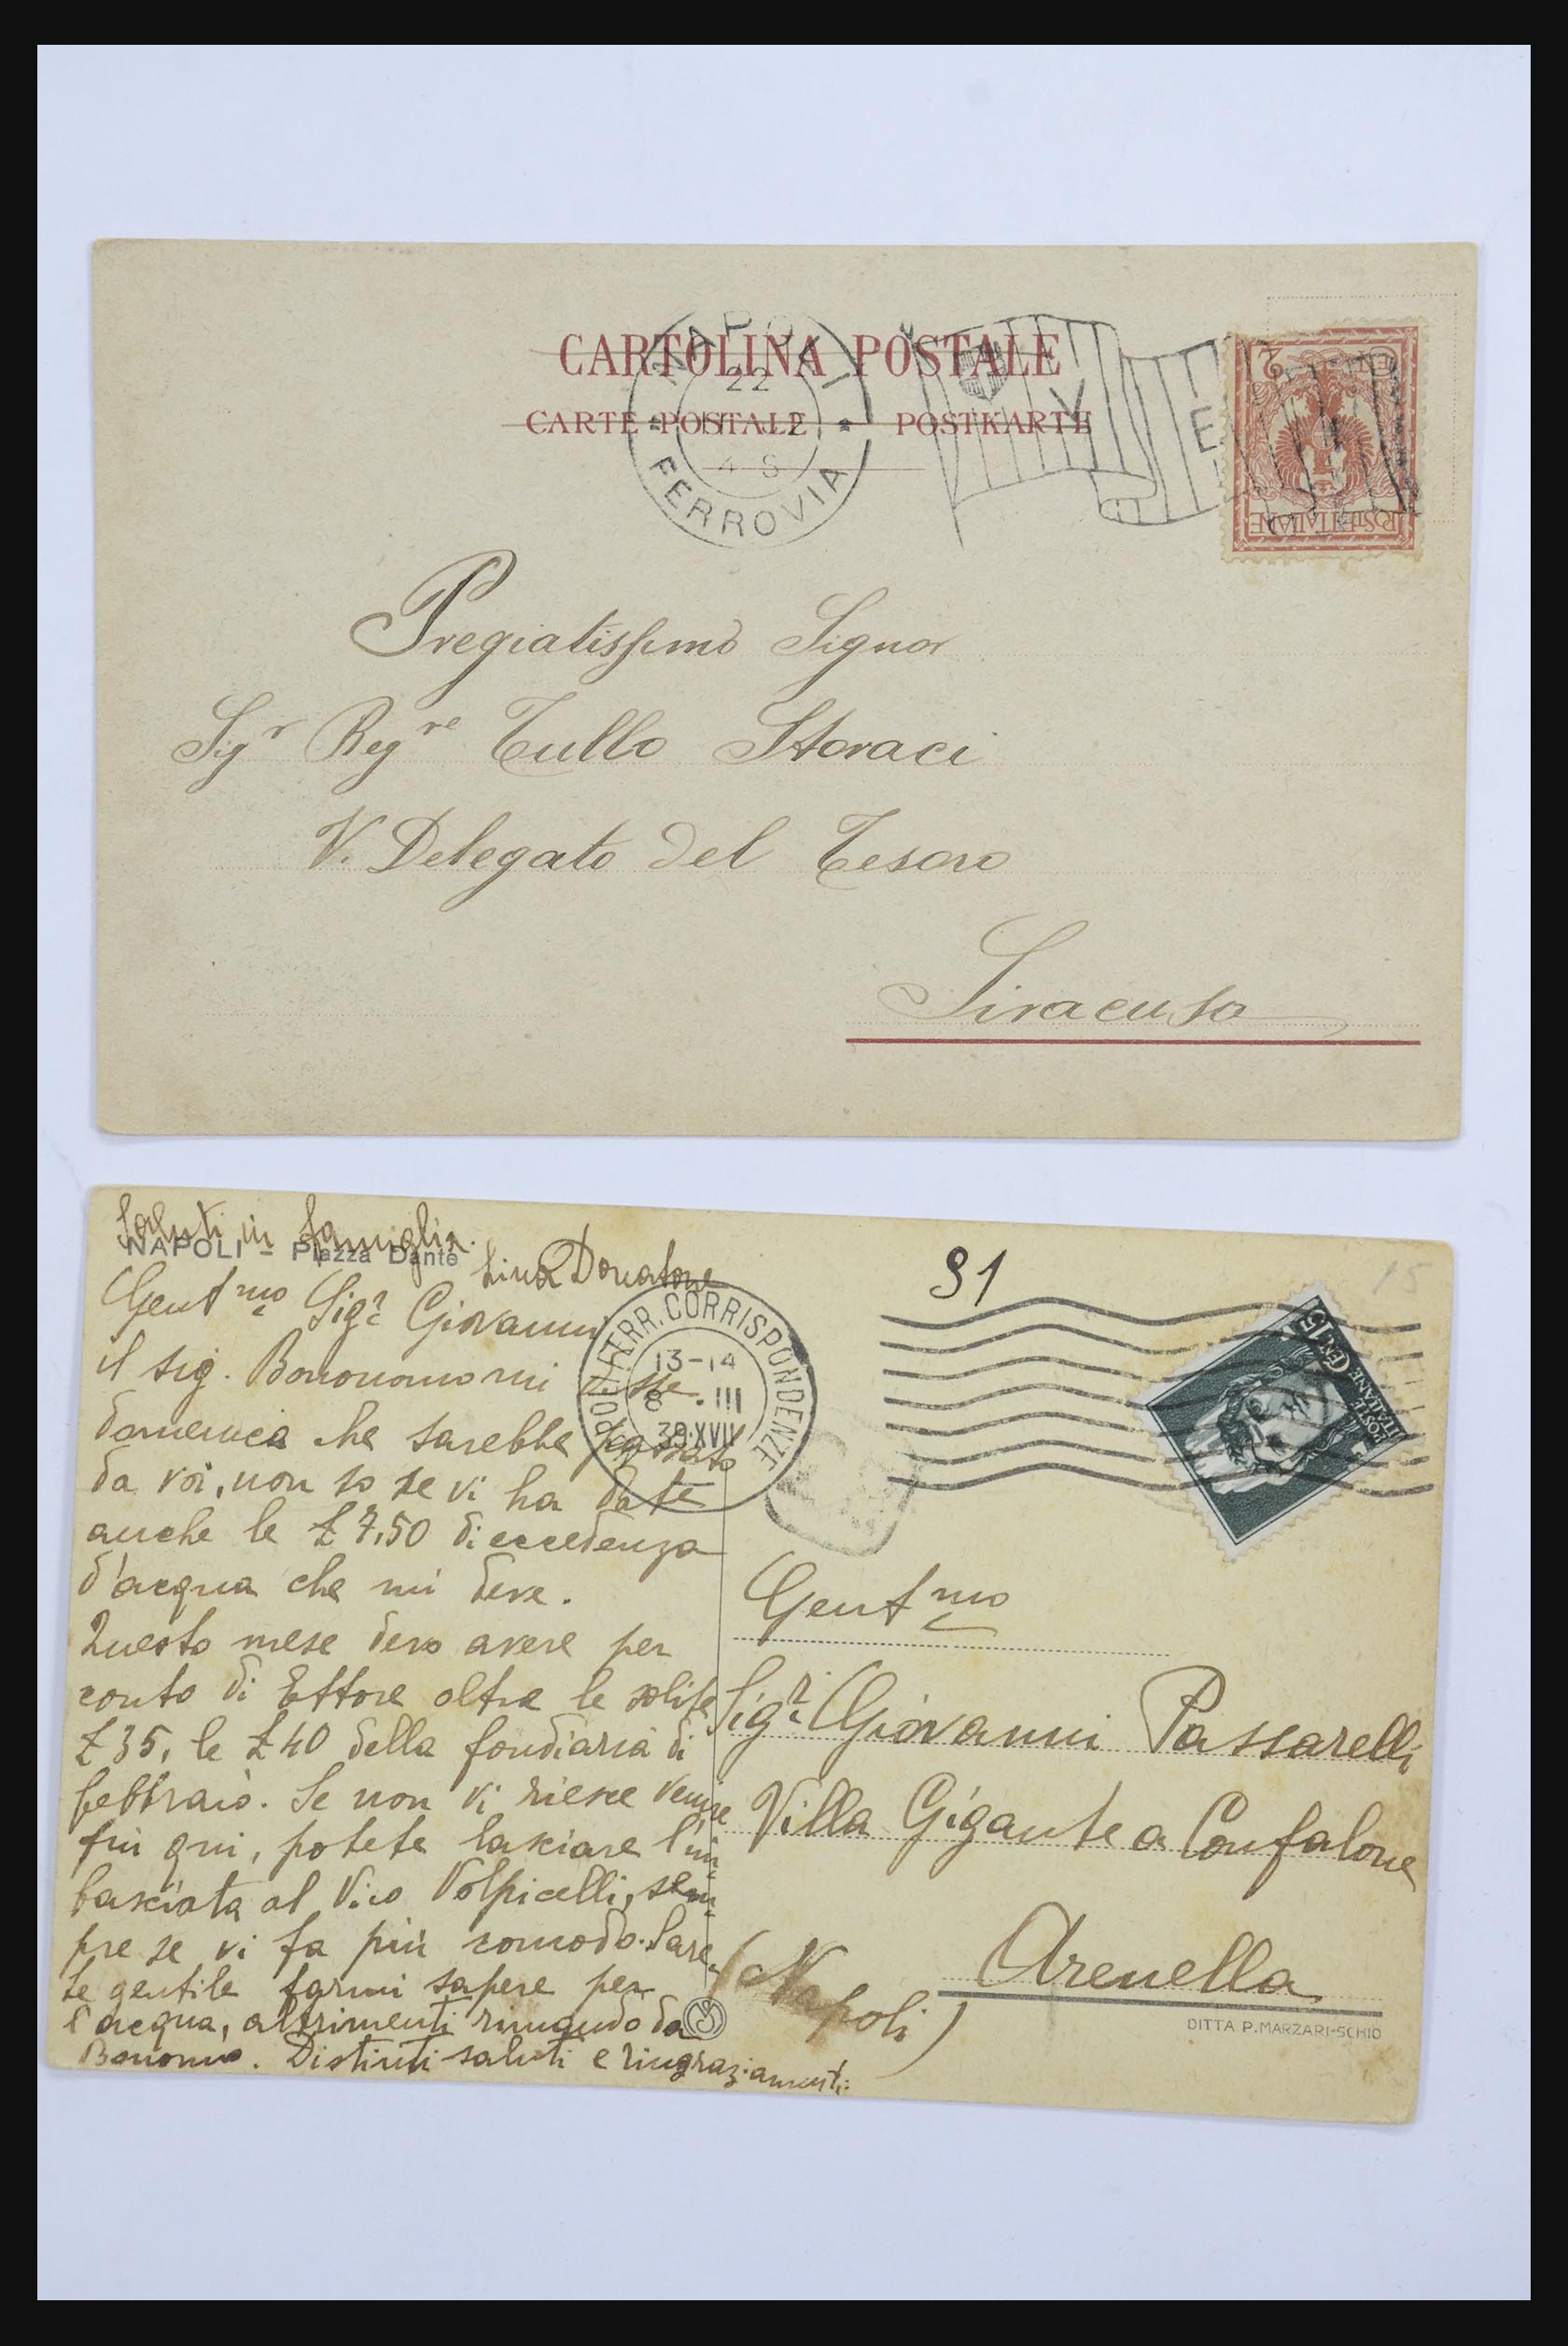 CARTOLINA POSTALE
CARTE POSTALE * POSTKARTE
NAPOLI
22
4 S
FERROVIA
V E
2
POSTE ITALIANE
Pregiatissimo Signor
Sigr Regre Tullo Storaci
V. Delegato del Tesoro
Siracusa
Saluti in famiglia.
NAPOLI - Piazza Dante
Lina Donatone
Gent.mo Sigr Giovanni
il sig. Bonomo mi disse
domenica che sarebbe passato
da voi, non so se vi ha dato
anche le £ 7,50 di eccedenza
d'acqua che mi deve.
Questo mese devo avere per
conto di Ettore oltre le solite
£ 35, le £ 40 della fondiaria di
febbraio. Se non vi riesce venire
fin qui, potete lasciare l'im-
basciata al Vico Volpicelli, sem-
pre se vi fa più comodo. Sare-
te gentile farmi sapere per
l'acqua, altrimenti rimando da
Bonomo. Distinti saluti e ringraziamenti
NAPOLI FERR. CORRISPONDENZE
13-14
8 . III
39.XVII
91
15
CENT. 15
POSTE ITALIANE
Gentmo
Sigr. Giovanni Passarelli
Villa Gigante a Confalone
Arenella
(Napoli)
DITTA P. MARZARI-SCHIO